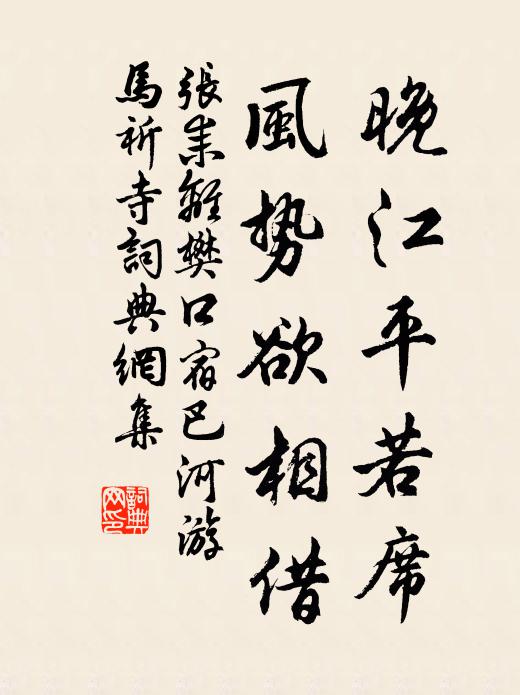 晚江平若席
風势欲相借
張耒離樊口宿巴河游
馬祈寺詞典網集
詞典网印